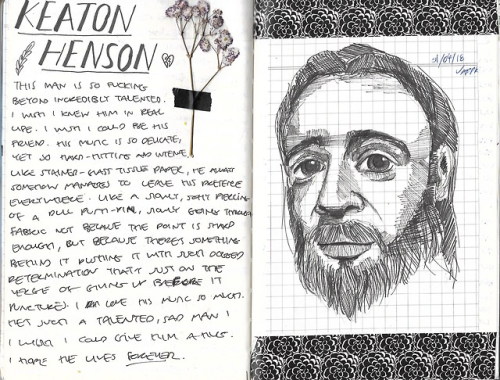 KEATON
HENSON
THIS MAN IS SO FUCKING
BEYOND INCREDIBLY TALENTED.
I WISH I KNEW HIM IN REAL
LIFE. I WISH I COULD BE HIS
FRIEND. HIS MUSIC IS SO DELICATE,
YET SO HARD-HITTING AND INTENSE
LIKE STAINED-GLASS TISSUE PAPER, HE
SOMEHOW MANAGES TO LEAVE HIS PRESENCE
EVERYWHERE. LIKE A SLOW, SOFT PIERCING
OF A DULL PUSH-PIN, SLOWLY GOING THROUGH
FABRIC NOT BECAUSE THE POINT IS SHARP
ENOUGH, BUT BECAUSE THERE'S SOMETHING
BEHIND IT PUSHING IT WITH SUCH DOGGED
DETERMINATION THAT IT JUST ON THE
VERGE OF GIVING UP BEFORE IT
PUNCTURES. I LOVE HIS MUSIC SO MUCH.
HE'S SUCH A TALENTED, SAD MAN I
I WISH I COULD GIVE HIM A HUG.
I HOPE HE LIVES FOREVER.
/04/18